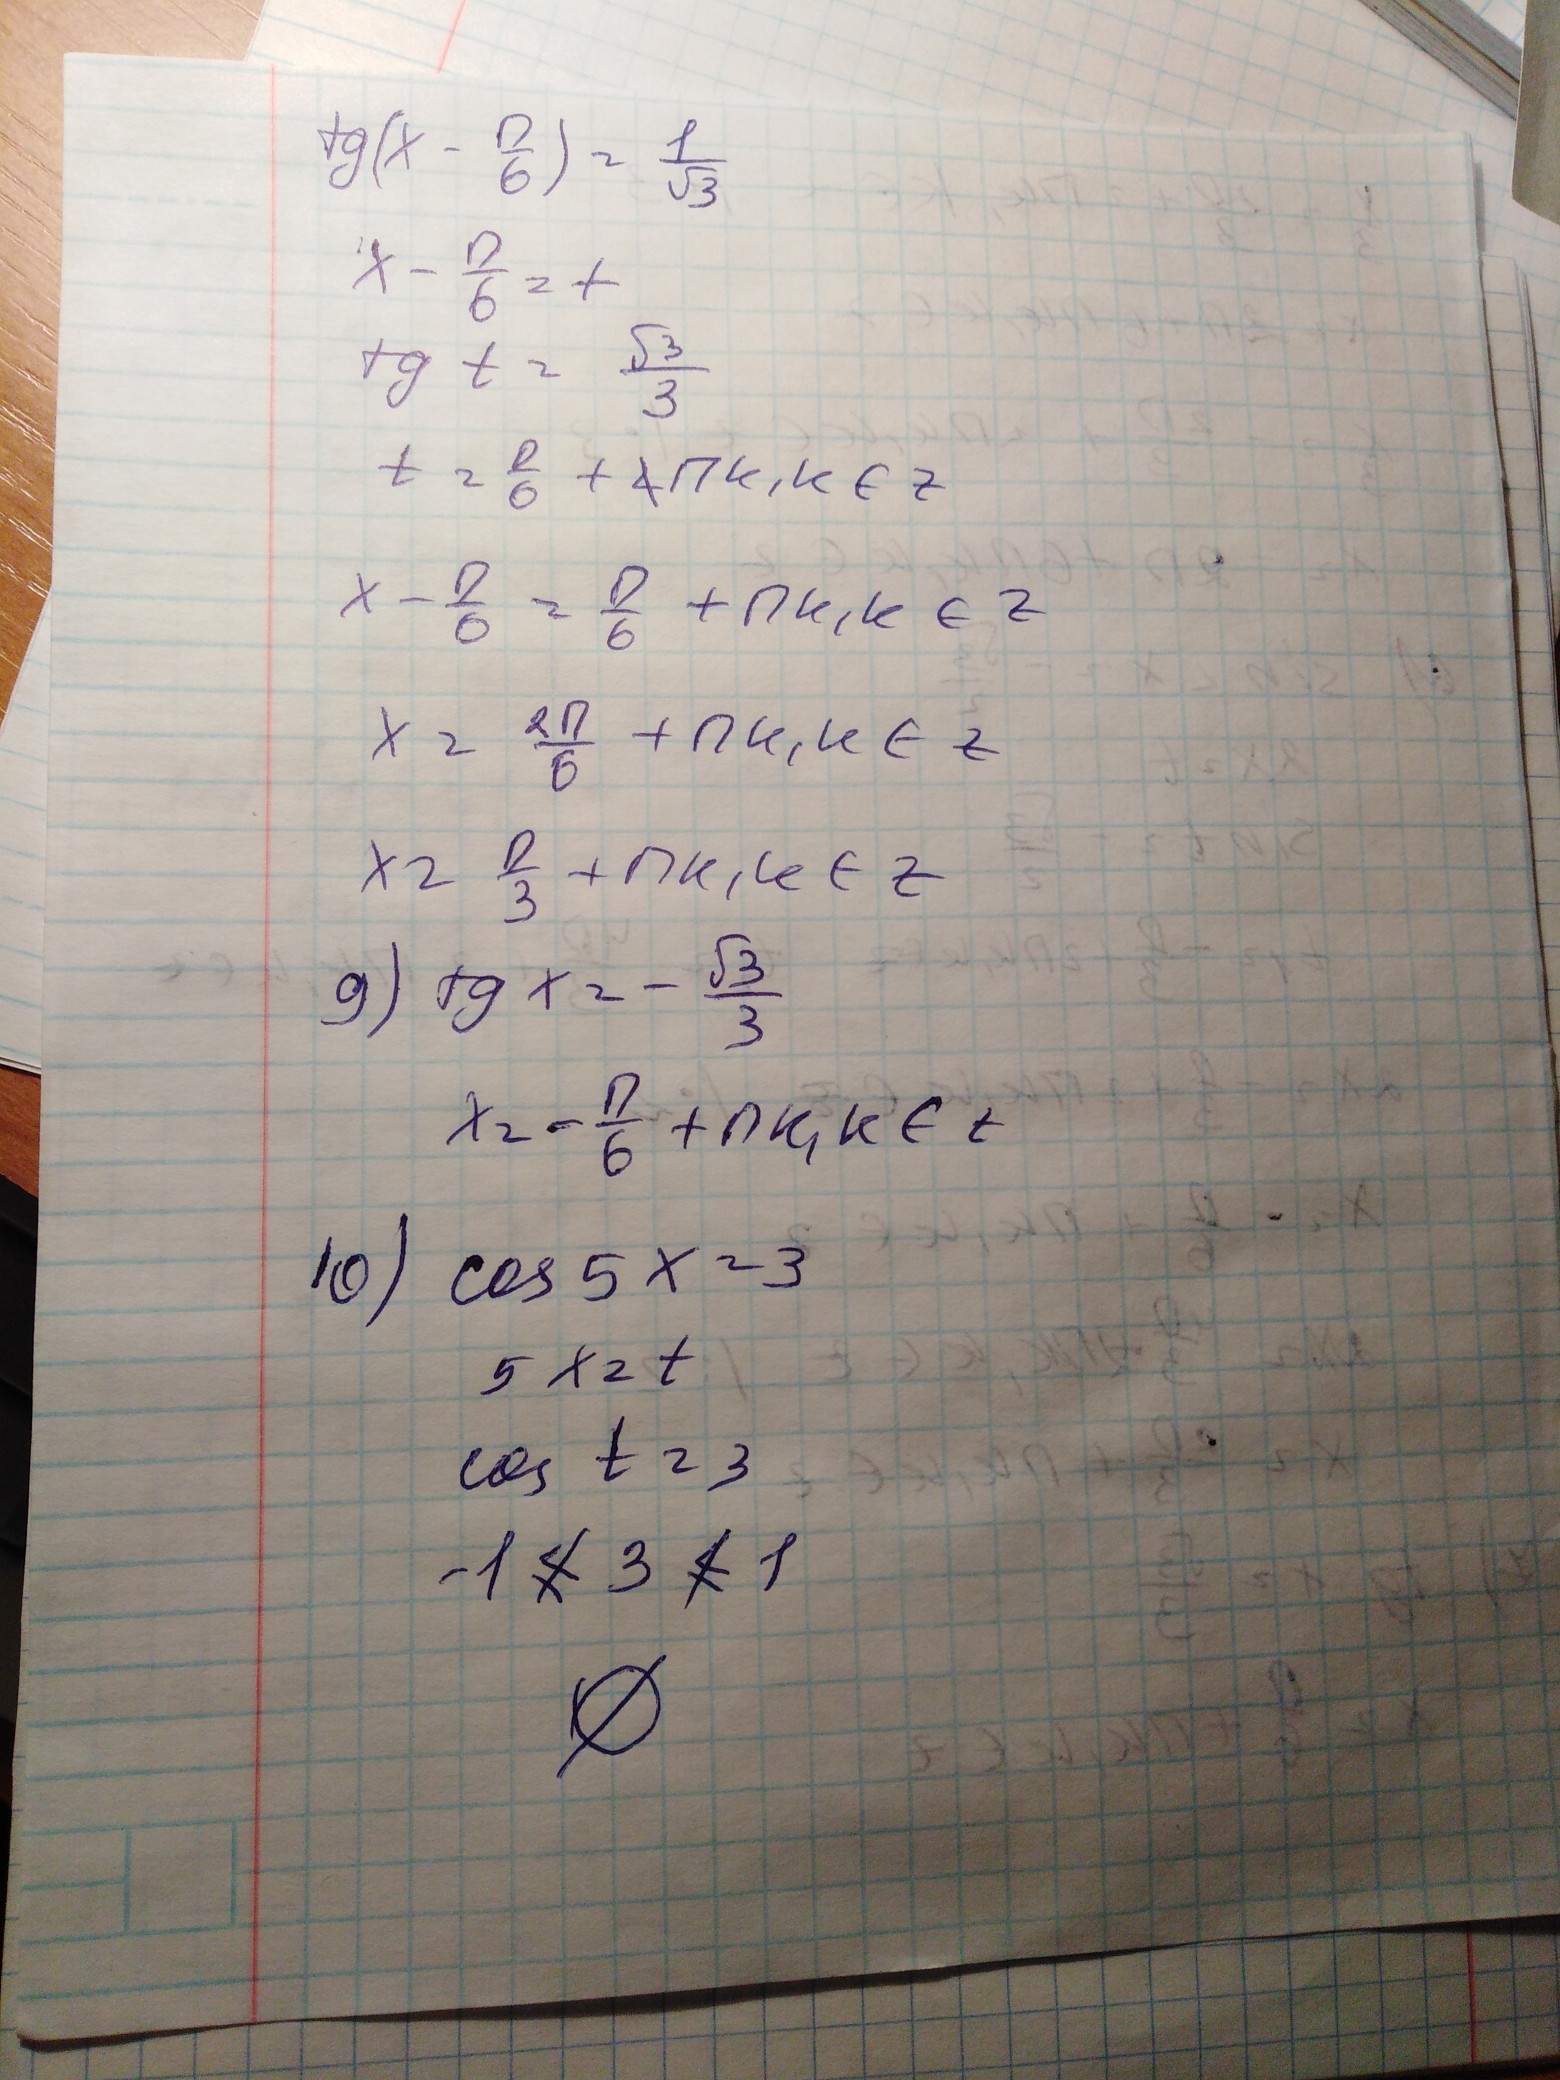 tg(x - π/6) = 1/√3
x - π/6 = t
tg t = √3/3
t = π/6 + πk, k ∈ z
x - π/6 = π/6 + πk, k ∈ z
x = 2π/6 + πk, k ∈ z
x = π/3 + πk, k ∈ z
9) tg x = - √3/3
x = - π/6 + πk, k ∈ z
10) cos 5x = 3
5x = t
cos t = 3
-1 ≮ 3 ≮ 1
∅